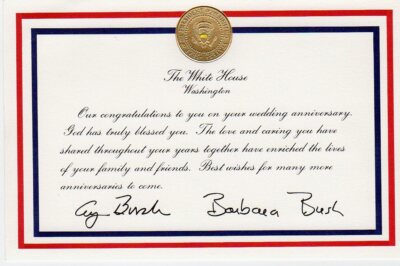 The White House
Washington
Our congratulations to you on your wedding anniversary.
God has truly blessed you. The love and caring you have
shared throughout your years together have enriched the lives
of your family and friends. Best wishes for many more
anniversaries to come.
Bush Barbara Bush